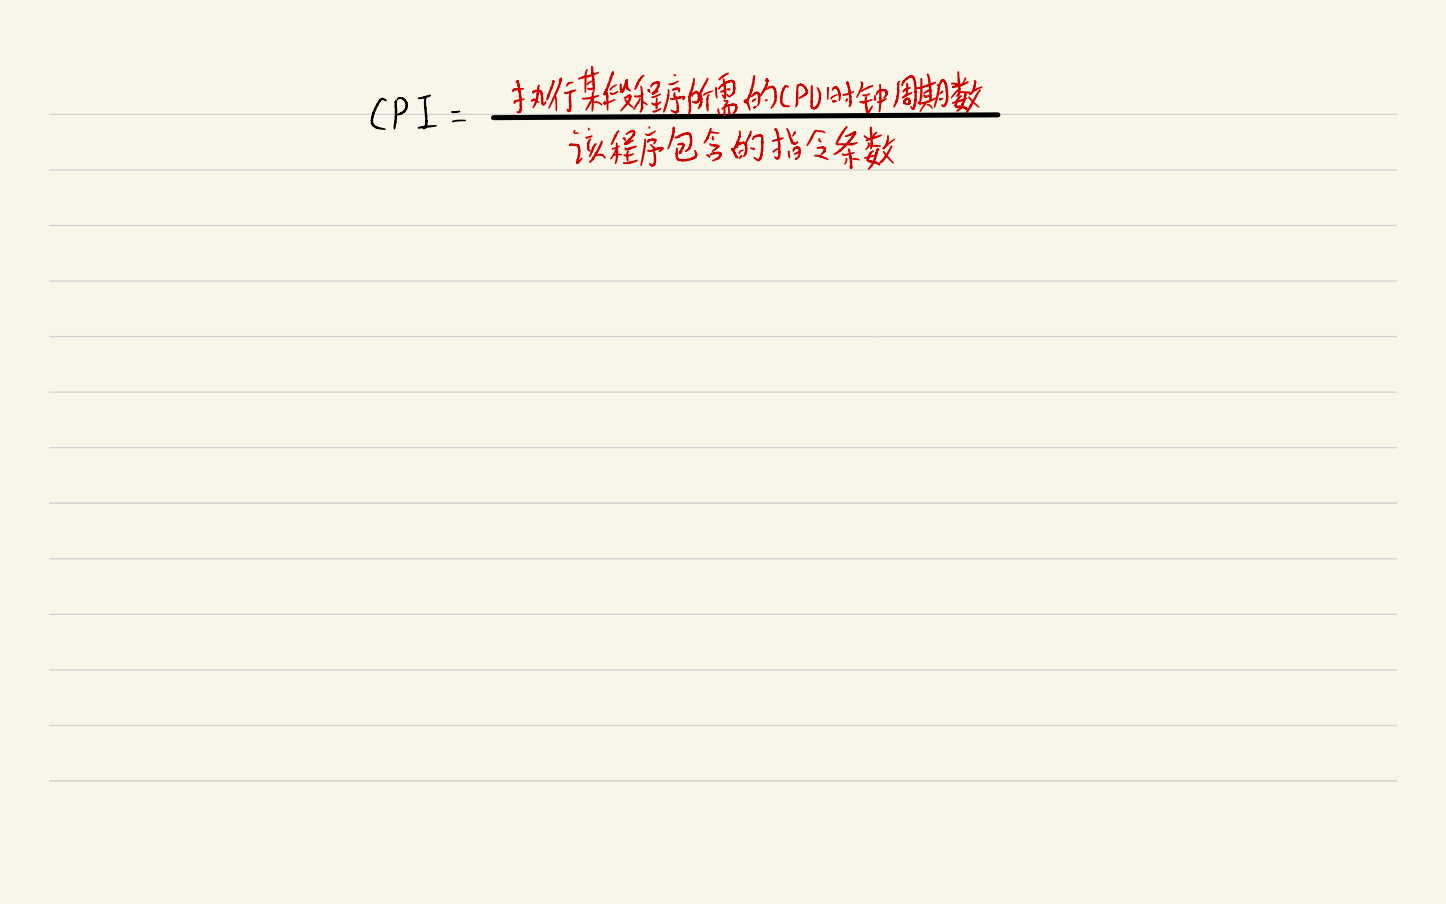 CPI = 执行某段程序所需的CPU时钟周期数
该程序包含的指令条数